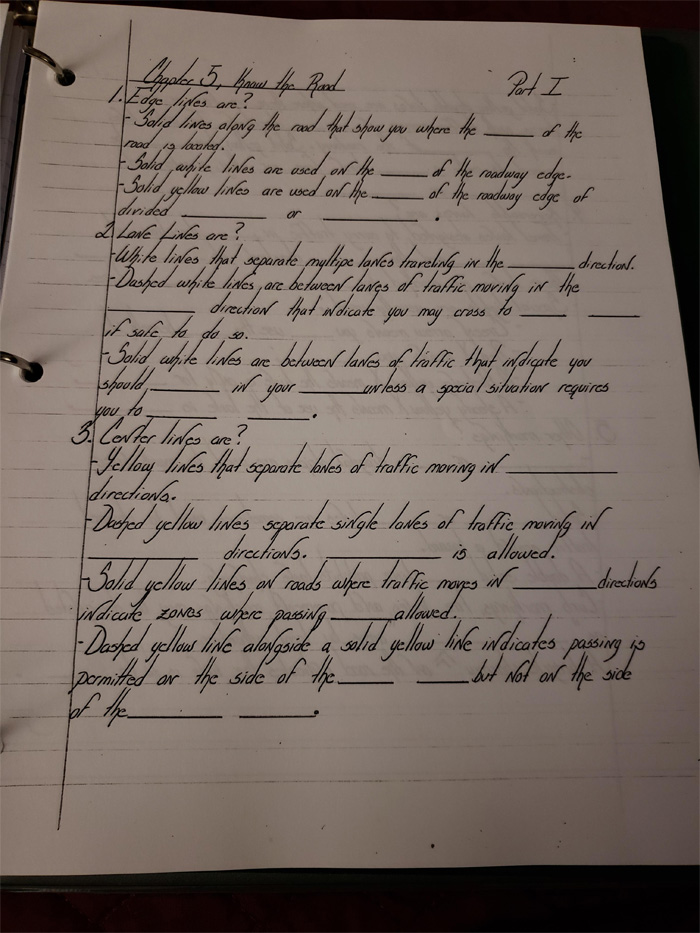 Chapter 5, Know the Road Part I
1. Edge lines are?
- Solid lines along the road that show you where the ______ of the
road is located.
- Solid white lines are used on the ______ of the roadway edge.
- Solid yellow lines are used on the ______ of the roadway edge of
divided __________ or __________.
2. Lane Lines are?
- White lines that separate multipe lanes traveling in the ________ direction.
- Dashed white lines are between lanes of traffic moving in the
__________ direction that indicate you may cross to _____ _____
if safe to do so.
- Solid white lines are between lanes of traffic that indicate you
should ________ in your ________ unless a special situation requires
you to ________ _______.
3. Center lines are?
- Yellow lines that separate lanes of traffic moving in ____________
directions.
- Dashed yellow lines separate single lanes of traffic moving in
____________ directions. ____________ is allowed.
- Solid yellow lines on roads where traffic moves in _________ directions
indicate zones where passing _______ allowed.
- Dashed yellow line alongside a solid yellow line indicates passing is
permitted on the side of the ______ ______ but not on the side
of the __________ ________.